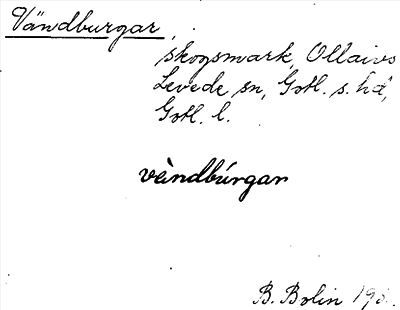 Vändburgar,
skogsmark, Ollaivs
Levede sn, Gotl. s. hd,
Gotl. l.
vèndbúrgar
B. Bolin